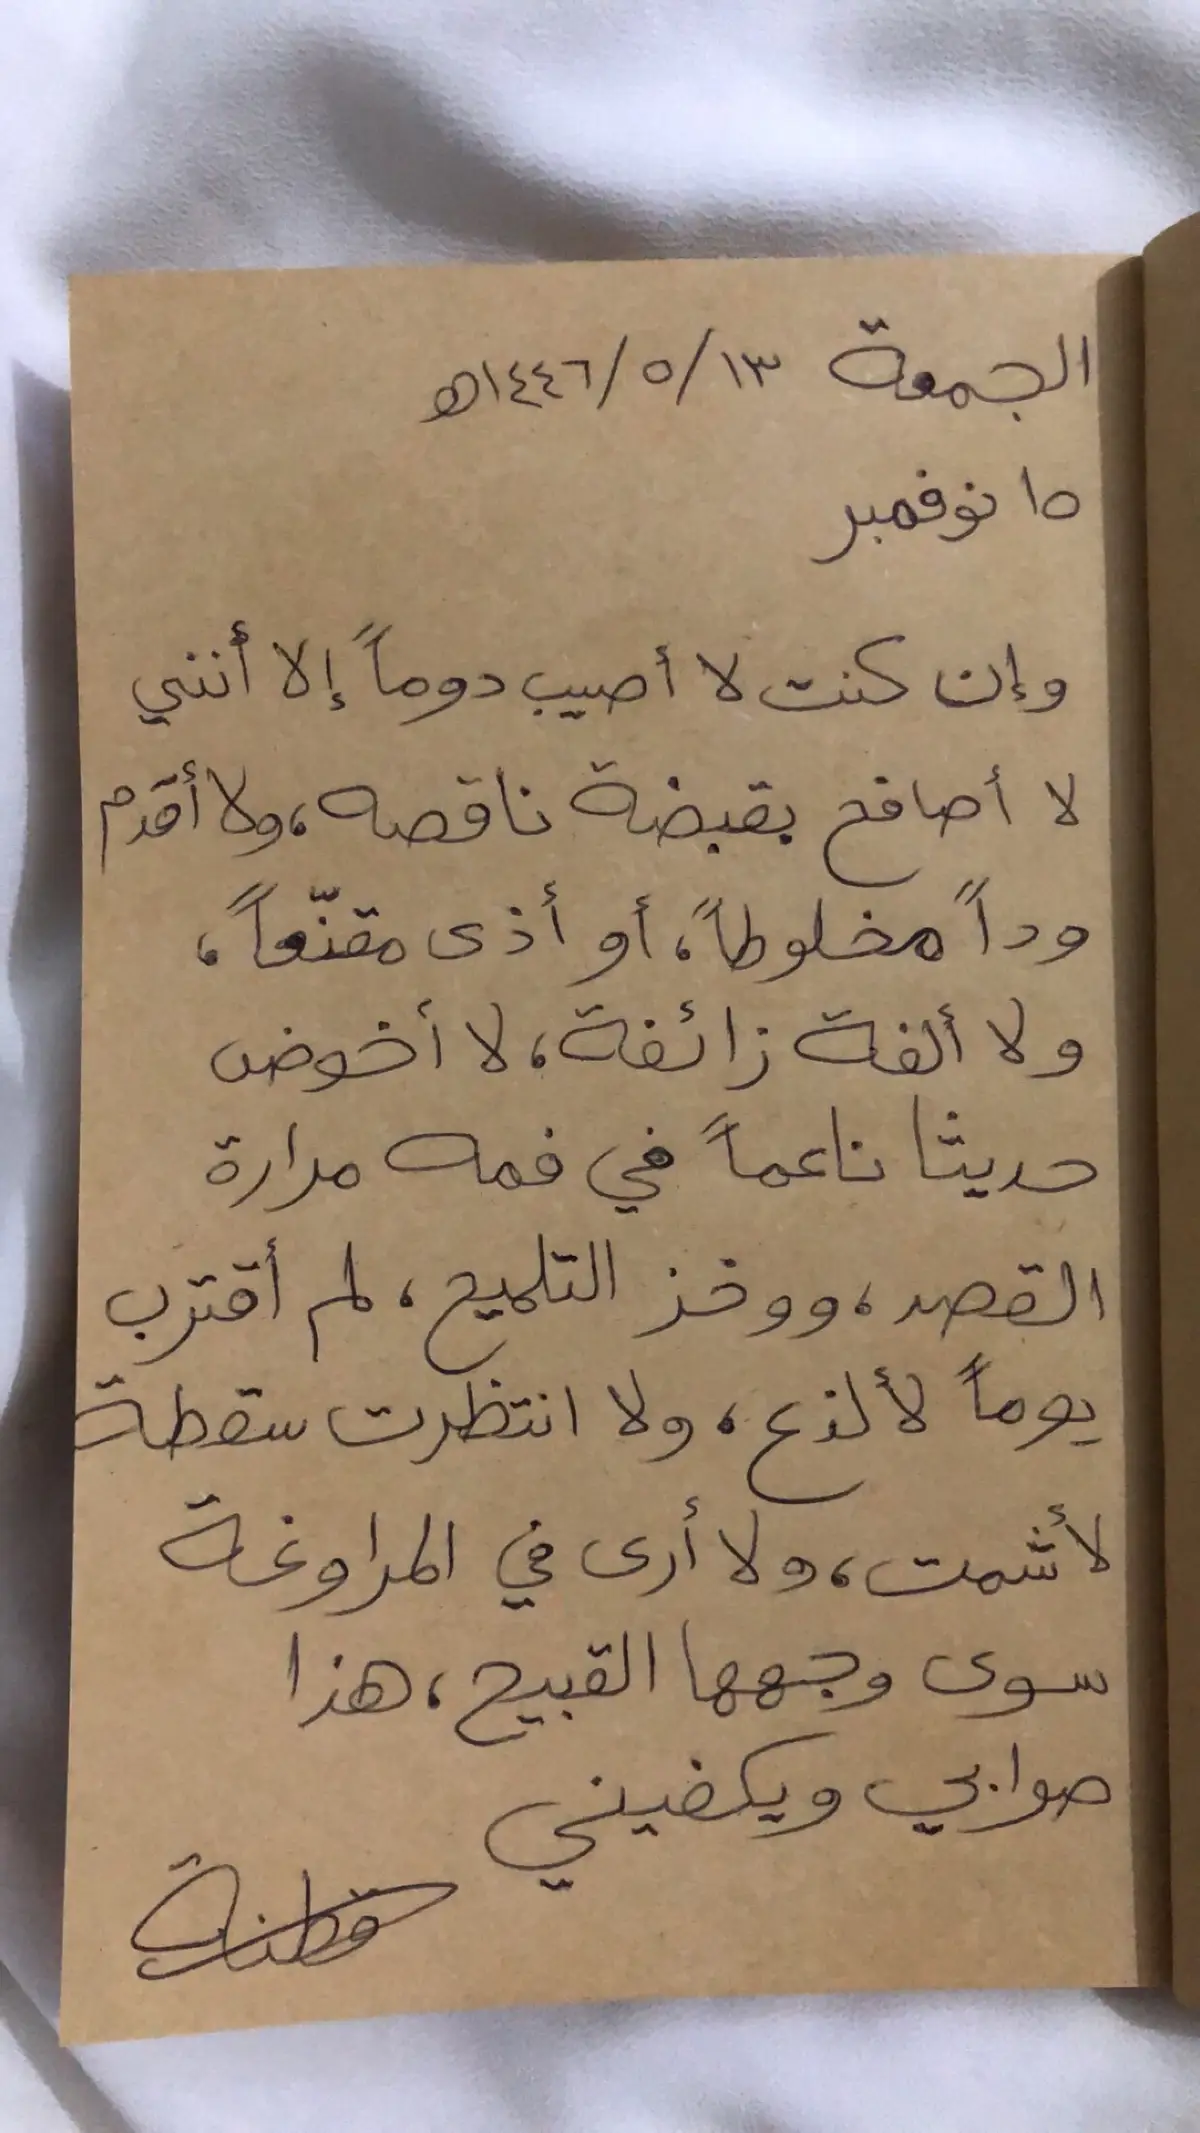 الجمعة ١٣/٥/١٤٤٦هـ
١٥ نوفمبر
وإن كنت لا أصيب دوماً إلا أنني
لا أصافح بقبضة ناقصه، ولا أقدم
وداً مخلوطاً، أو أذى مقنّعاً،
ولا ألفة زائفة، لا أخوض
حديثا ناعماً في فمه مرارة
القصد، ووخز التلميح، لم أقترب
يوماً لألذع، ولا انتظرت سقطة
لأشمت، ولا أرى في المراوغة
سوى وجهها القبيح، هذا
صوابي ويكفيني